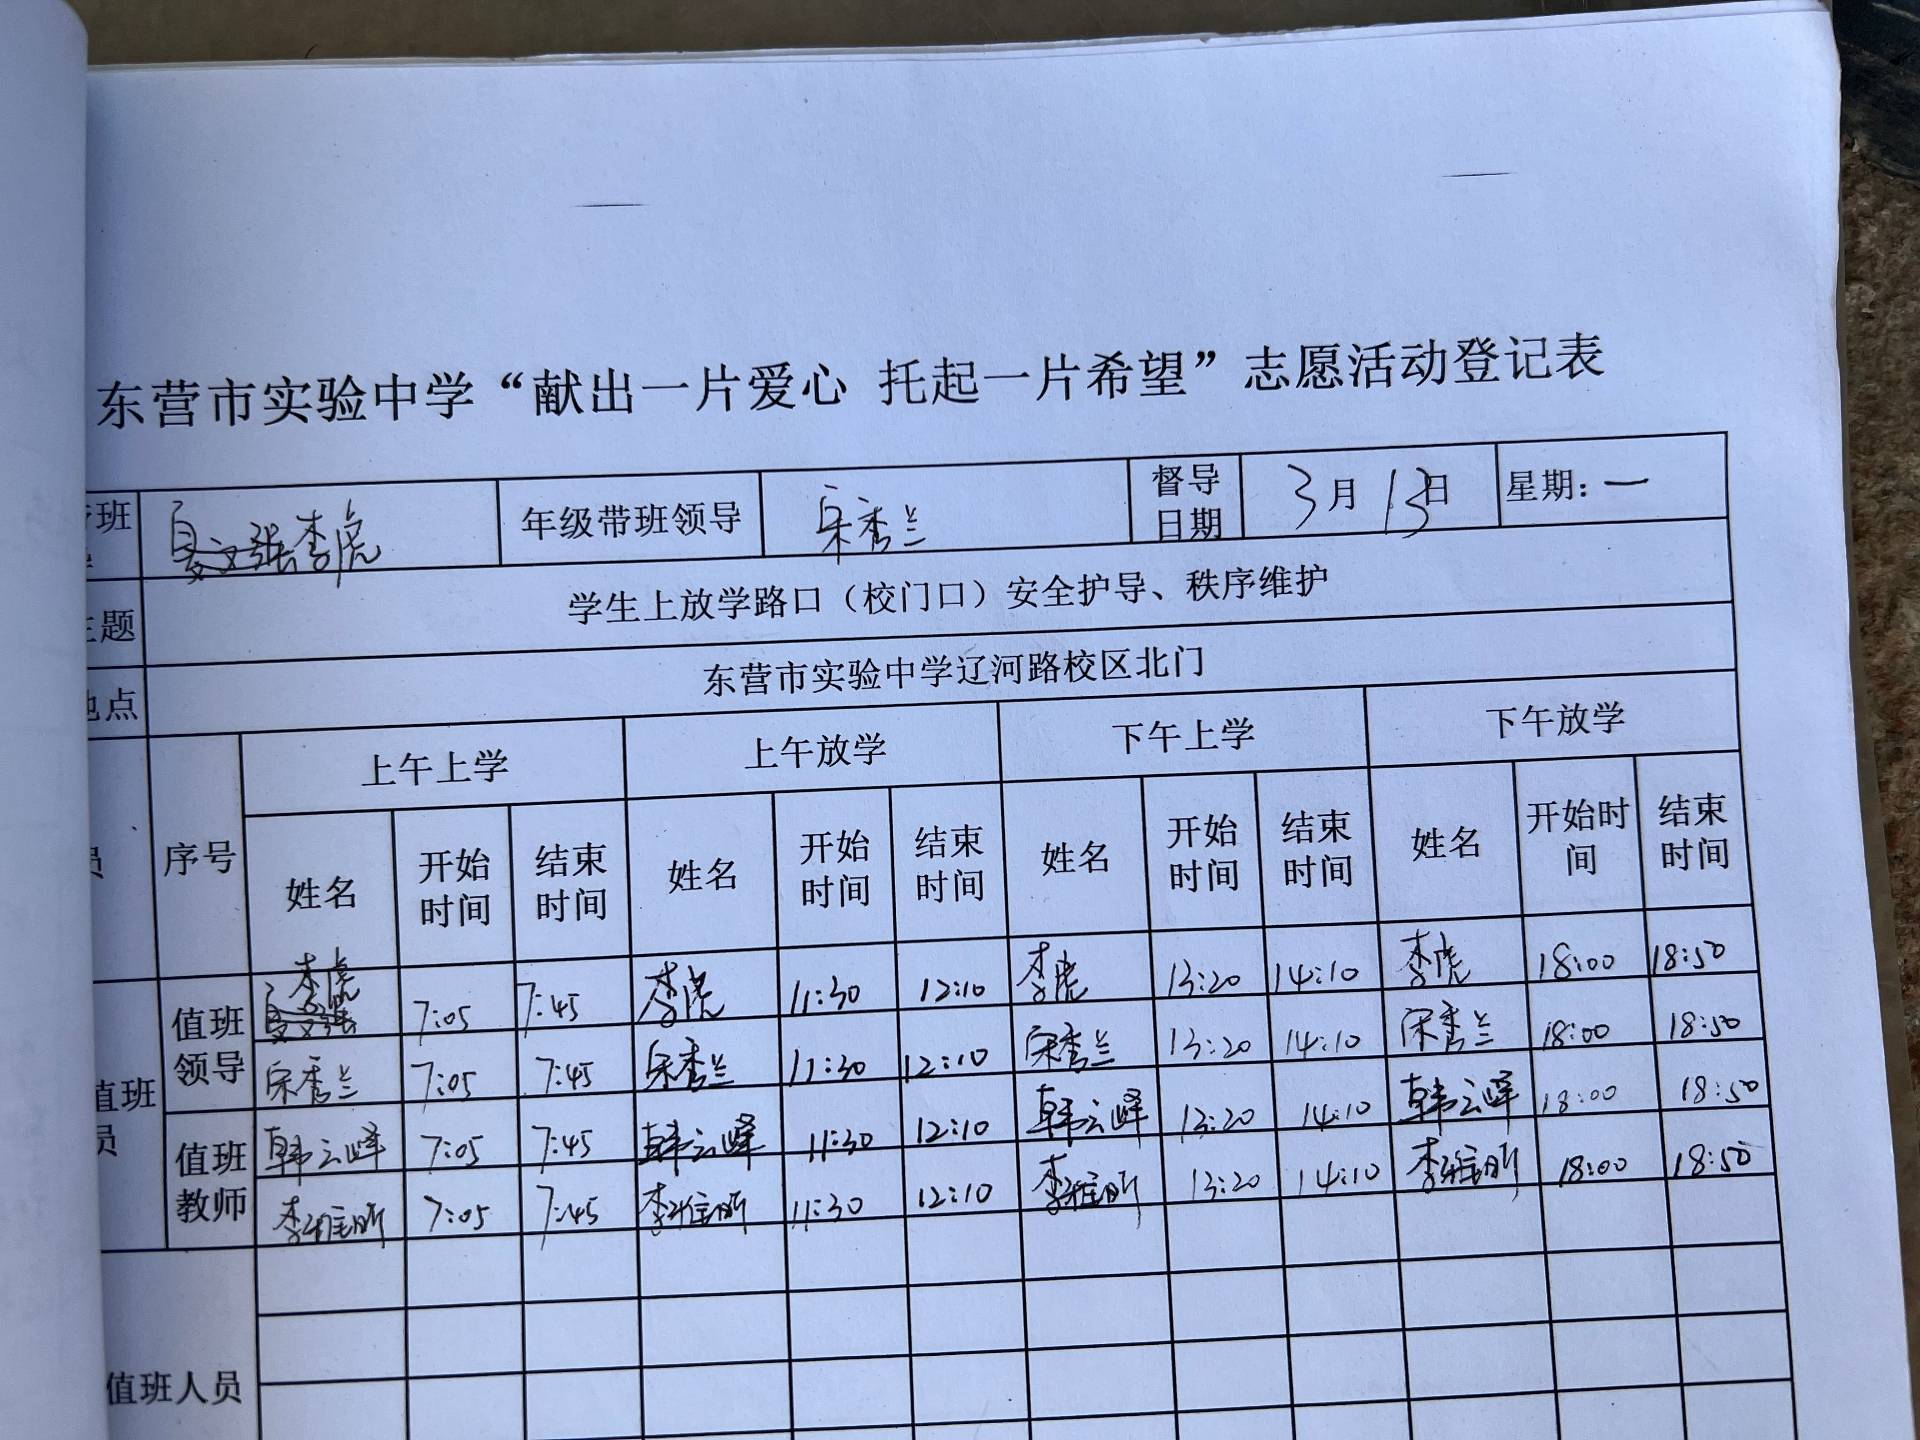 东营市实验中学“献出一片爱心 托起一片希望”志愿活动登记表
班 夏文张李虎 年级带班领导 宋秀兰 督导日期 3月13日 星期：一
主题 学生上放学路口（校门口）安全护导、秩序维护
地点 东营市实验中学辽河路校区北门
员 序号 上午上学 上午放学 下午上学 下午放学
姓名 开始时间 结束时间 姓名 开始时间 结束时间 姓名 开始时间 结束时间 姓名 开始时间 结束时间
值班员
值班领导 李虎 夏文张 7:05 7:45 李虎 11:30 12:10 李虎 13:20 14:10 李虎 18:00 18:50
宋秀兰 7:05 7:45 宋秀兰 11:30 12:10 宋秀兰 13:20 14:10 宋秀兰 18:00 18:50
值班教师 韩云峰 7:05 7:45 韩云峰 11:30 12:10 韩云峰 13:20 14:10 韩云峰 18:00 18:50
李 7:05 7:45 李 11:30 12:10 李 13:20 14:10 李 18:00 18:50
值班人员